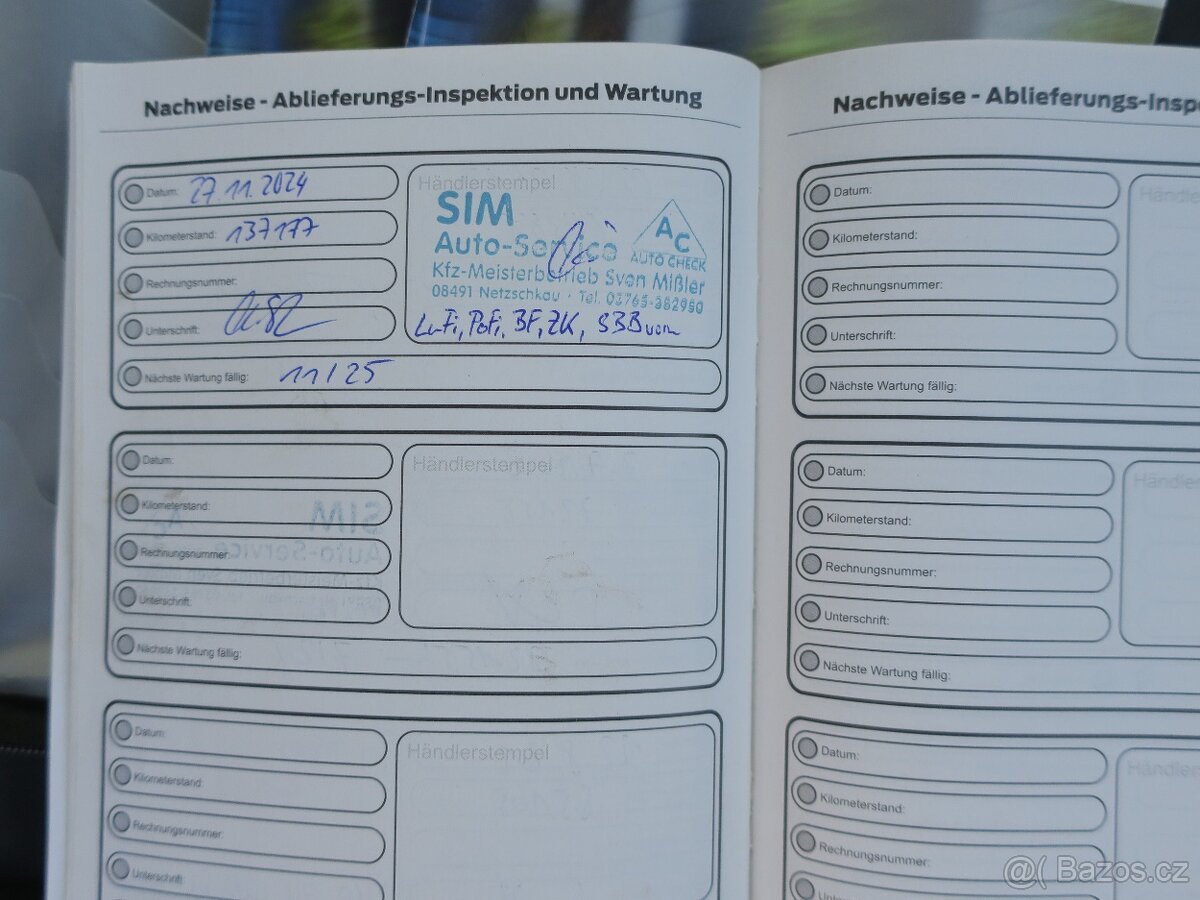 Nachweise - Ablieferungs-Inspektion und Wartung
Datum: 27.11.2024
Kilometerstand: 137177
Rechnungsnummer:
Unterschrift:
Händlerstempel
SIM
Auto-Service
AC
AUTO CHECK
Kfz-Meisterbetrieb Sven Mißler
08491 Netzschkau · Tel. 03765-382950
LuFi, PoFi, BF, ZK, SBB vorn
Nächste Wartung fällig: 11/25
Datum:
Kilometerstand:
Rechnungsnummer:
Unterschrift:
Händlerstempel
Nächste Wartung fällig:
SIM
Auto-Service
Datum:
Kilometerstand:
Rechnungsnummer:
Unterschrift:
Händlerstempel
Nachweise - Ablieferungs-Inspe
Datum:
Kilometerstand:
Rechnungsnummer:
Unterschrift:
Nächste Wartung fällig:
Händle
Datum:
Kilometerstand:
Rechnungsnummer:
Unterschrift:
Nächste Wartung fällig:
Händler
Datum:
Kilometerstand:
Rechnungsnummer:
Händler
@( Bazos.cz